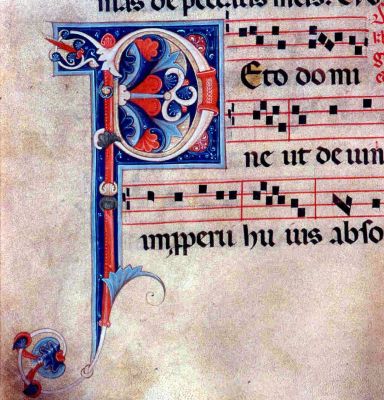 mas de peccatis meis.
P Eto do mi
ne ut de uin
improperii hu ius abso